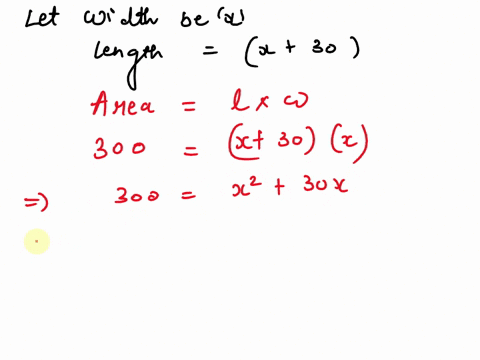 Let width be (x)
length = (x + 30)
Area = l x w
300 = (x + 30) (x)
=) 300 = x² + 30x